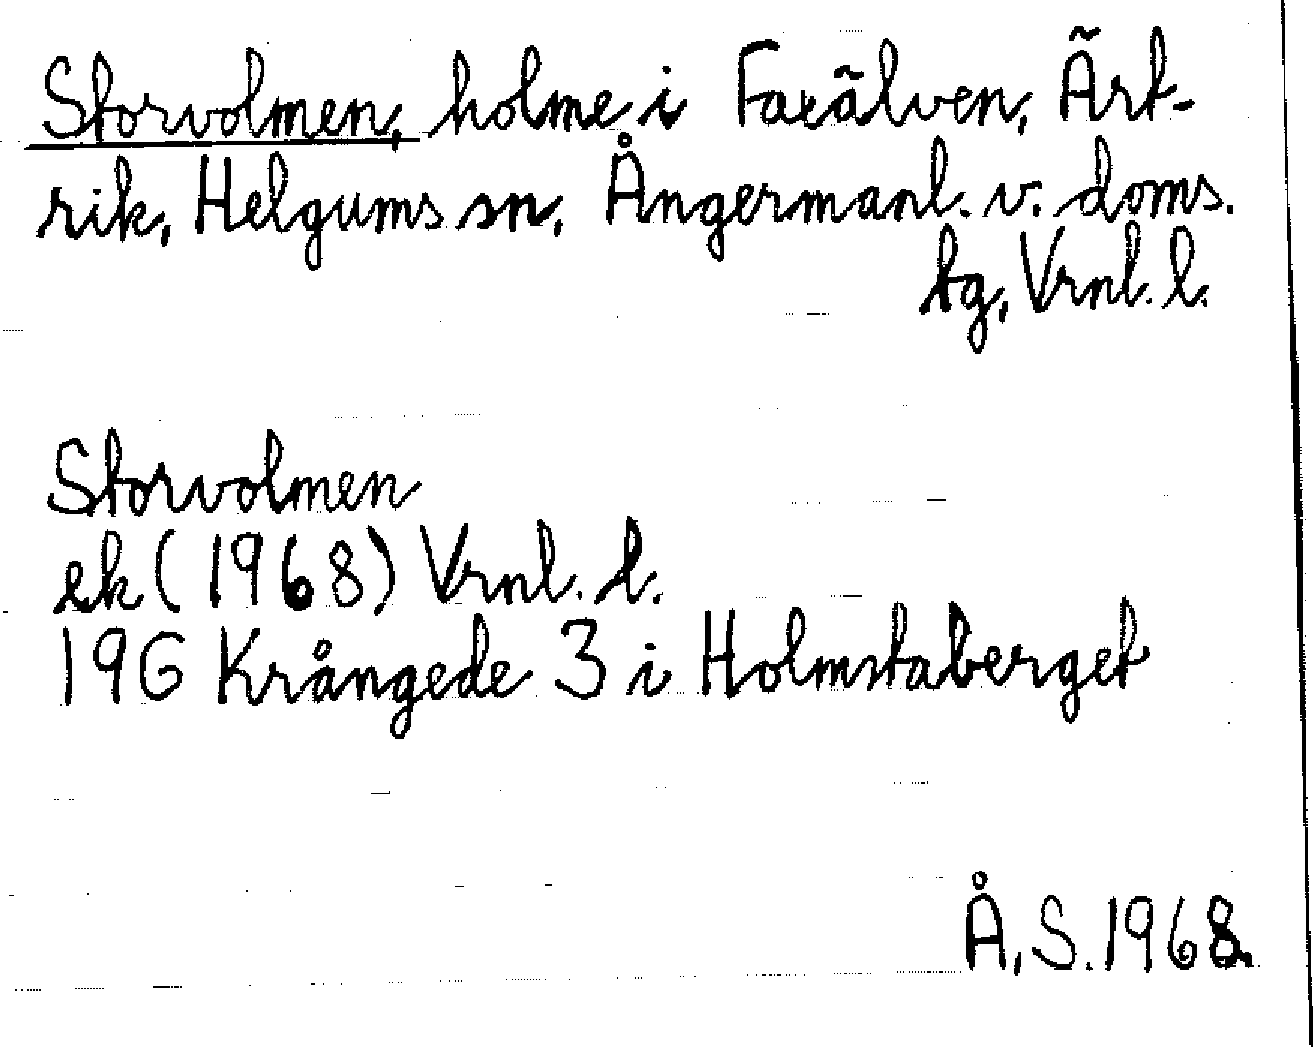 Storvolmen, holme i Faxälven, Ärt-
rik, Helgums sn, Ångermanl. v. doms.
tg, Vrnl. l.
Storvolmen
ek (1968) Vrnl. l.
19G Krångede 3 i Holmstaberget
Å, S. 1968.